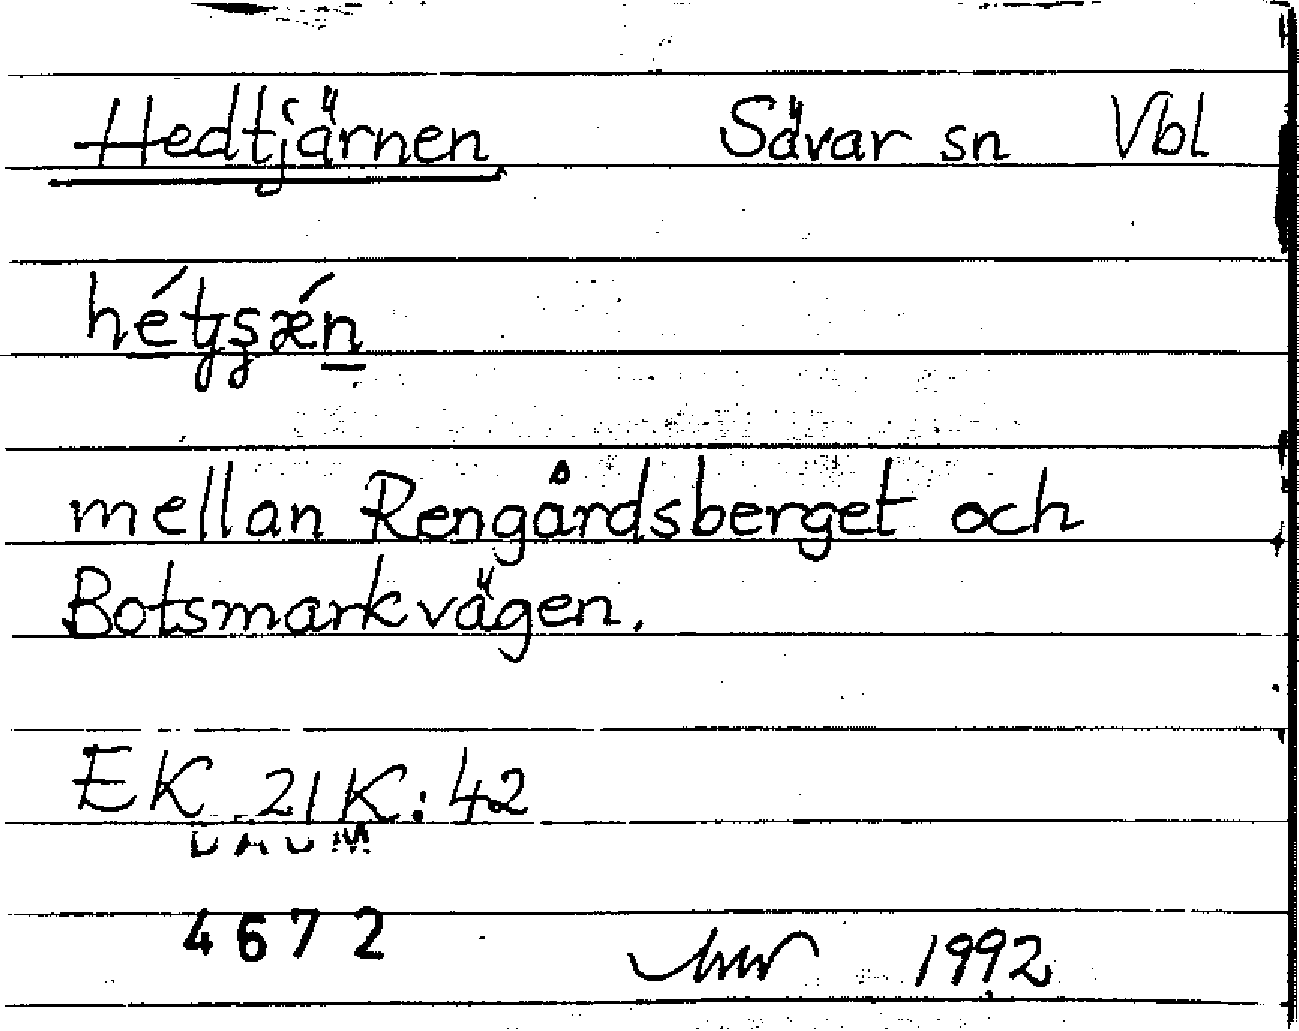 Hedtjärnen Sävar sn Vbl
mellan Rengårdsberget och
Botsmarkvägen.
EK 21K:42
DAUM
4672
1992